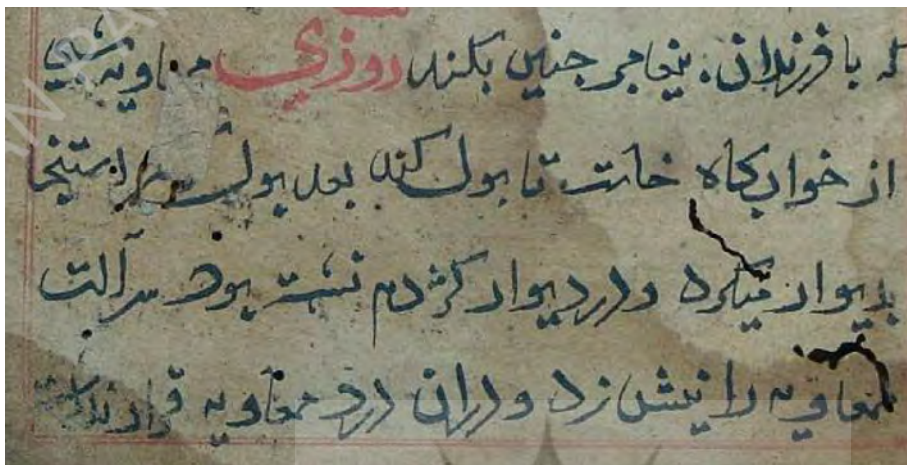 که با فرزندان پیغامبر جنین بکند روزي معاویه شبي
از خوابکاه خاست تا بول کند بعد بول استنجا
بدیوار میکرد و در دیوار کژدم نشسته بود سر آلت
معاویه را نیش زد و دران درد معاویه قرار